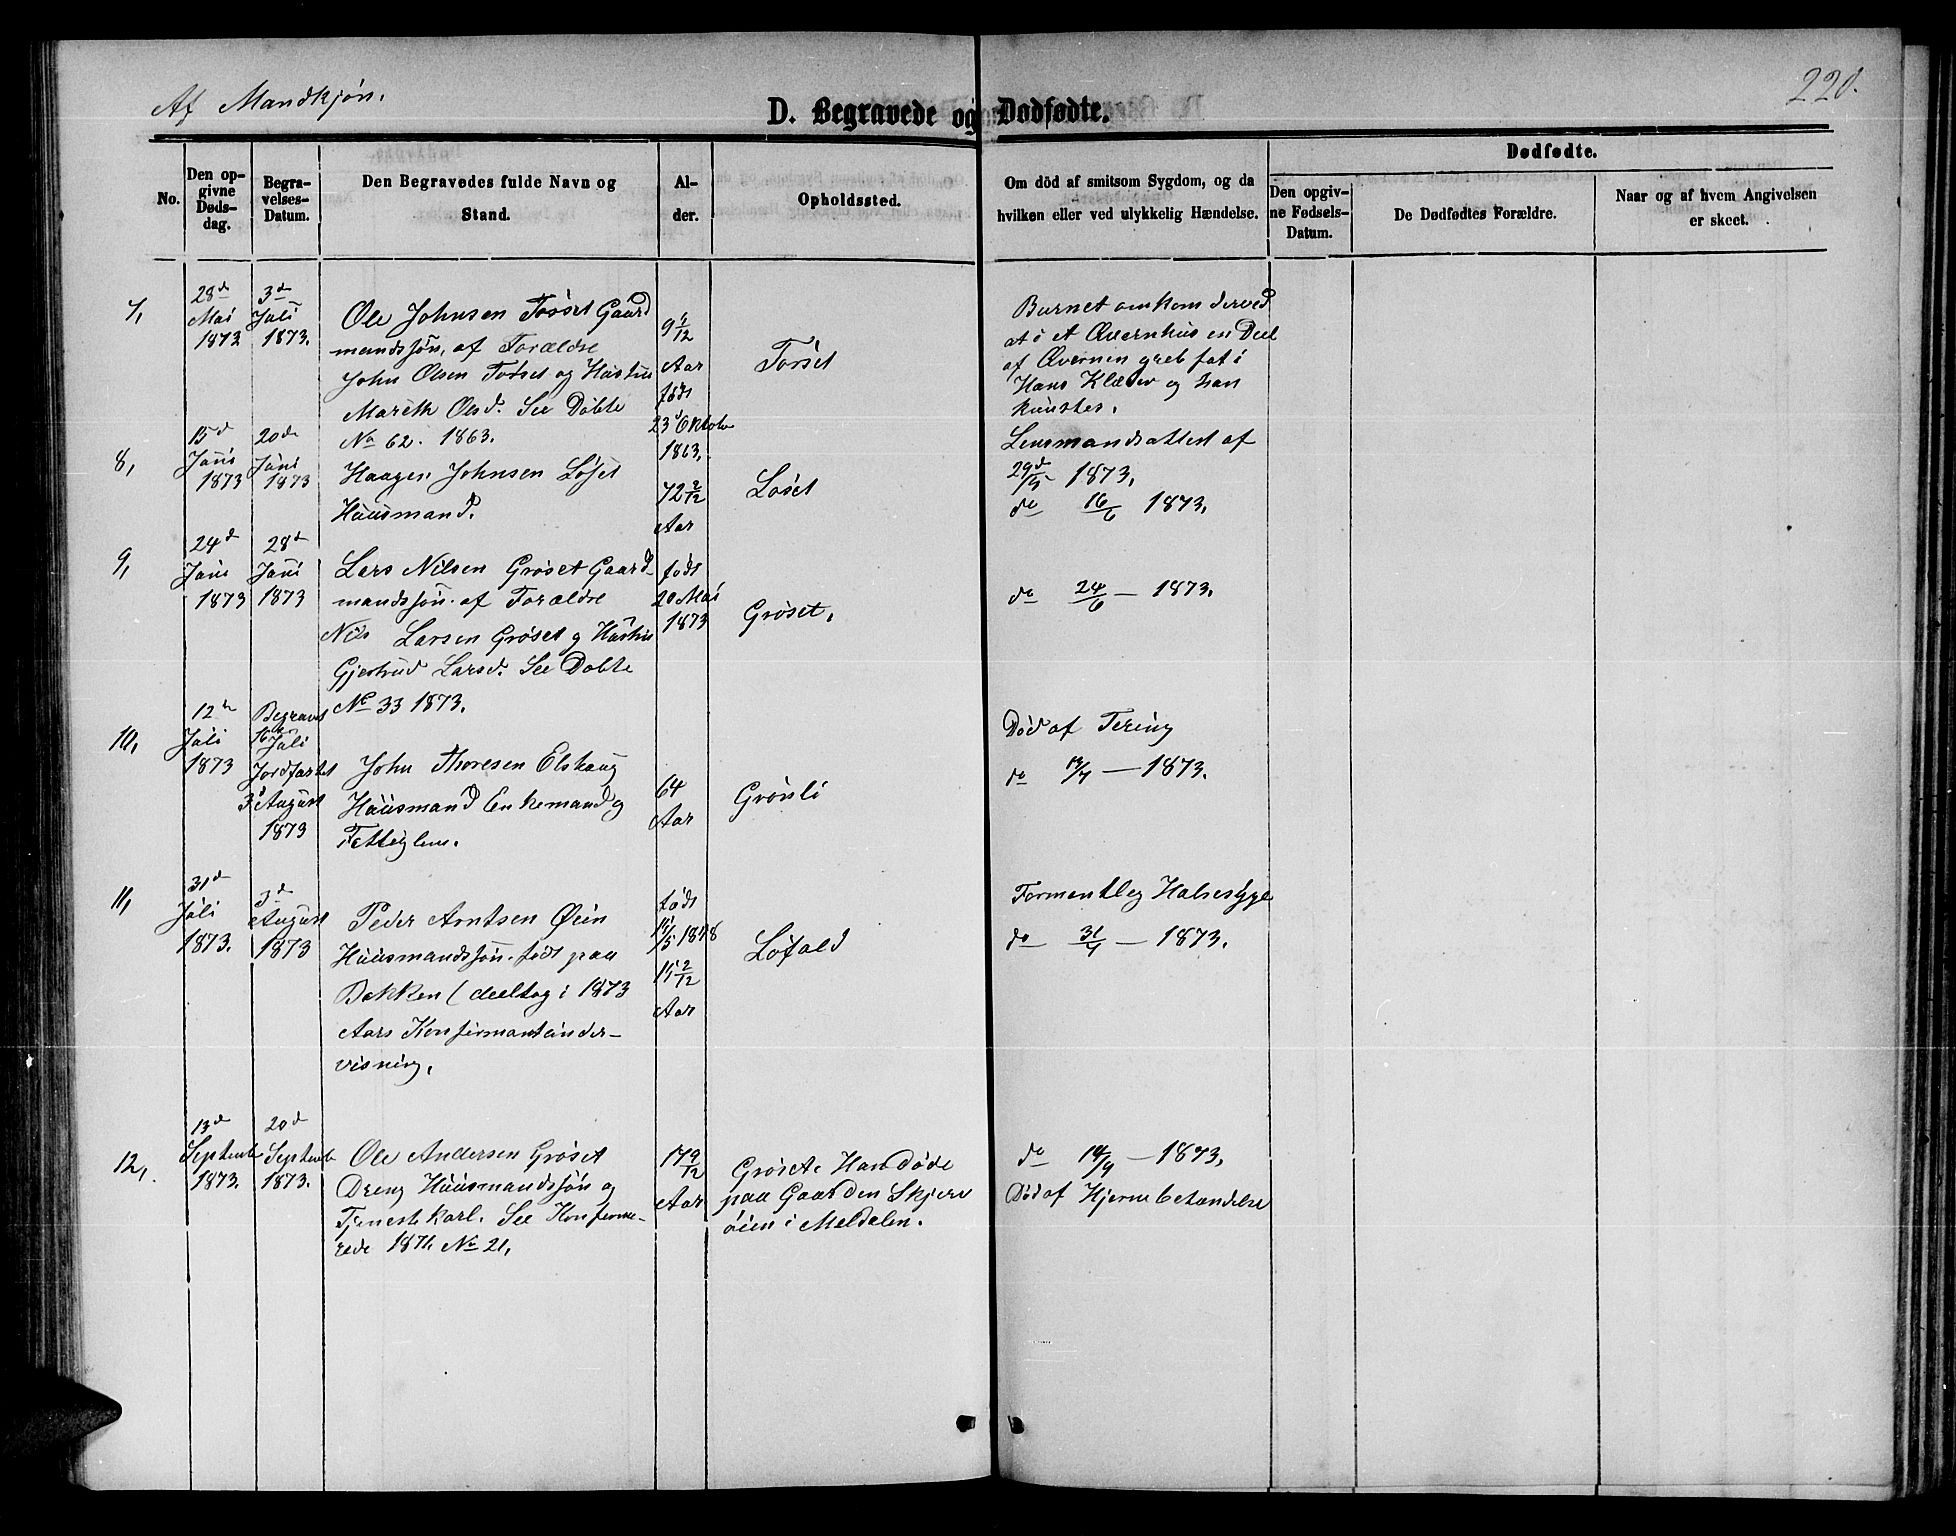 Af Mandkjøn.
220.
D. Begravede og Dødfødte.
No.
Den op-
givne
Døds-
dag.
Begra-
velses-
Datum.
Den Begravedes fulde Navn og
Stand.
Al-
der.
Opholdssted.
Om död af smitsom Sygdom, og da
hvilken eller ved ulykkelig Hændelse.
Dødfødte.
Den opgiv-
ne Fødsels-
Datum.
De Dødfødtes Forældre.
Naar og af hvem Angivelsen
er skeet.
7,
28de
Mai
1873
3de
Juli
1873.
Ole Johnsen Tøsset Gaard
mandssøn, af Forældre
John Olsen Torset og Hustru
Mareth Olsd. See Døbte
No 62. 1863.
9 7/12
Aar
født
23de Oktobr
1863.
Torset
Barnet omkom derved
at i et Qvernhus en Deel
af Qvernen greb fat i
Hans Klæder og han
knustes.
Lensmandsattest af
29de/5 1873.
8,
15de
Juni
1873
20de
Juni
1873
Haagen Johnsen Løset
Huusmand.
72 2/12
Aar
Løset
do 16/6 1873.
9,
24de
Juni
1873
28de
Juni
1873
Lars Nilsen Grøset Gaard-
mandssøn. af Forældre
Nils Larsen Grøset og Hustru
Gjertrud Larsd. See Døbte
No 33 1873.
født
20 Mai
1873
Grøset.
do 24/6 — 1873.
10,
12te
Juli
1873
Begravet
16de Juli
Jordfæstet
3de August
1873
John Thoresen Elshaug
Huusmand Enkemand og
Fattiglem.
64
Aar
Grønli
Død af Tering
do 13/7 — 1873.
11,
31de
Juli
1873.
3de
August
1873
Peder Arntsen Øien
Huusmandssøn. født paa
Bakken (deeltog i 1873
Aars Konfirmantunder-
visning,
født
1858
15 2/12
Aar
Løfald
Formentlig Halsesyge
do 31/7 — 1873.
12,
13de
Septembr
1873.
20de
Septembr
1873.
Ole Andersen Grøset
Dreng Huusmandssøn og
Tjenestekarl. See Konfirme-
rede 1871. No 21,
17 9/12
Aar
Grøset. Han døde
paa Gaarden Skjere
øien i Meldalen.
do 14/9 — 1873,
Død af Hjernebetændelse